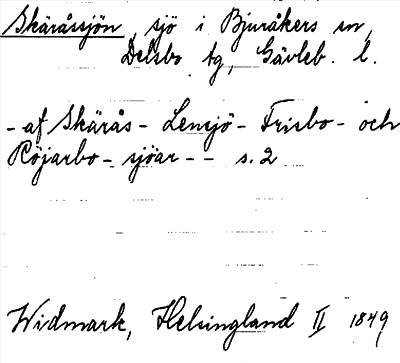 Skäråssjön, sjö i Bjuråkers sn,
Delsbo tg, Gävleb. l.
- af Skärås - Lensjö - Frisbo - och
Röjarbo - sjöar - - s. 2
Widmark, Helsingland II 1849